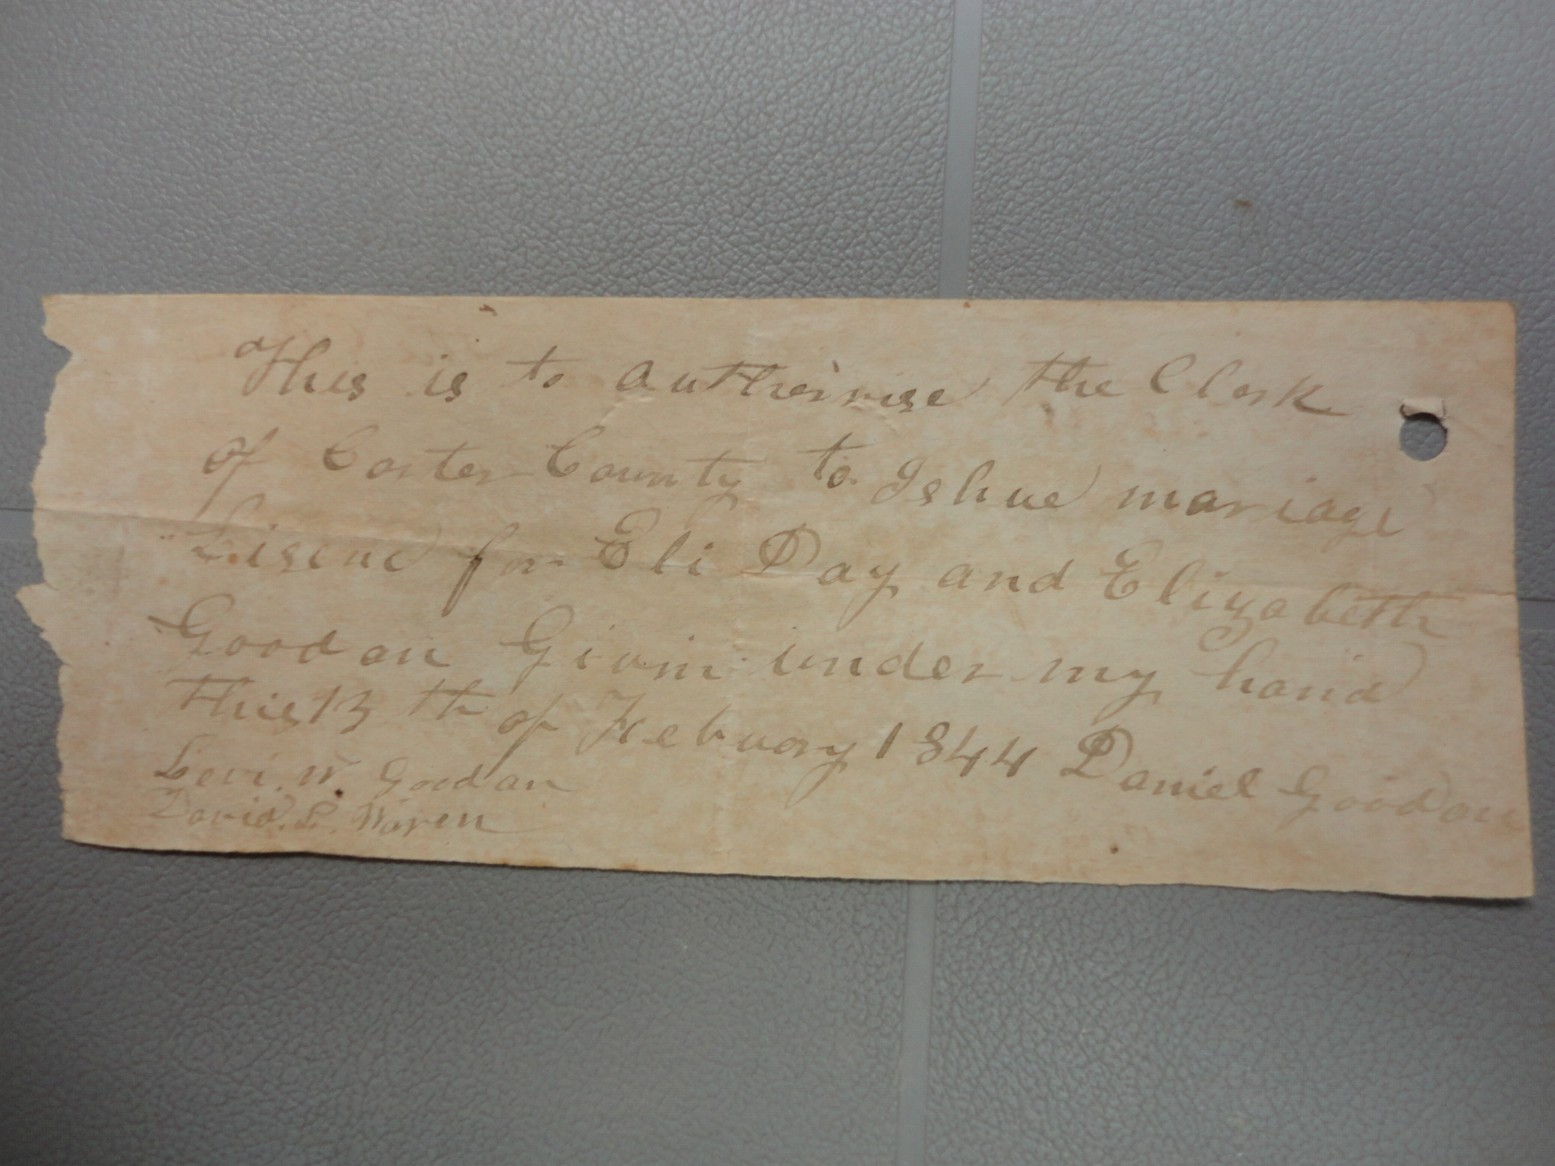 This is to authorise the Clerk
of Carter County to Ishue mariage
Lisene for Eli Day and Elizabeth
Goodan Givin under my hand
this 13 th of Febuary 1844 Daniel Goodan
Levi. W. Goodan
David. L. Waren